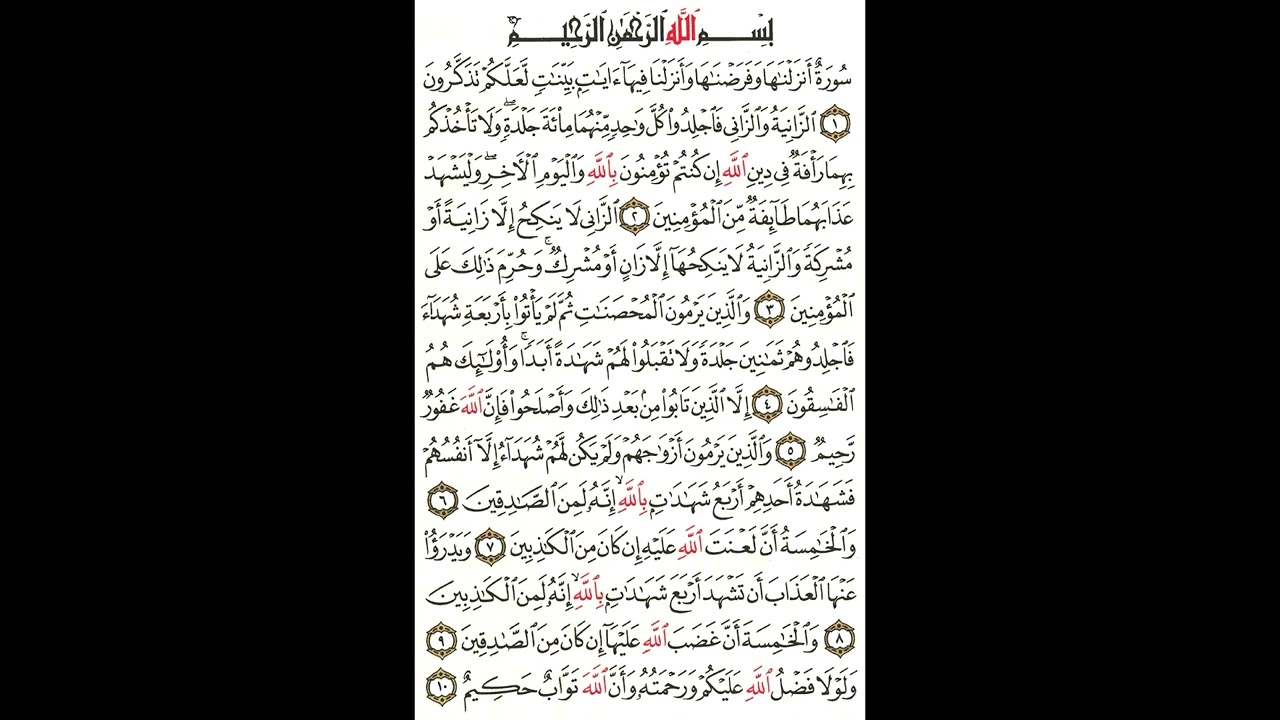 بِسْمِ ٱللَّهِ ٱلرَّحْمَٰنِ ٱلرَّحِيمِ
سُورَةٌ أَنزَلْنَٰهَا وَفَرَضْنَٰهَا وَأَنزَلْنَا فِيهَآ ءَايَٰتٍۭ بَيِّنَٰتٍ لَّعَلَّكُمْ تَذَكَّرُونَ
١ ٱلزَّانِيَةُ وَٱلزَّانِى فَٱجْلِدُوا۟ كُلَّ وَٰحِدٍ مِّنْهُمَا مِا۟ئَةَ جَلْدَةٍۖ وَلَا تَأْخُذْكُم
بِهِمَا رَأْفَةٌ فِى دِينِ ٱللَّهِ إِن كُنتُمْ تُؤْمِنُونَ بِٱللَّهِ وَٱلْيَوْمِ ٱلْأَخِرِۖ وَلْيَشْهَدْ
عَذَابَهُمَا طَآئِفَةٌ مِّنَ ٱلْمُؤْمِنِينَ ٢ ٱلزَّانِى لَا يَنكِحُ إِلَّا زَانِيَةً أَوْ
مُشْرِكَةً وَٱلزَّانِيَةُ لَا يَنكِحُهَآ إِلَّا زَانٍ أَوْ مُشْرِكٌۚ وَحُرِّمَ ذَٰلِكَ عَلَى
ٱلْمُؤْمِنِينَ ٣ وَٱلَّذِينَ يَرْمُونَ ٱلْمُحْصَنَٰتِ ثُمَّ لَمْ يَأْتُوا۟ بِأَرْبَعَةِ شُهَدَآءَ
فَٱجْلِدُوهُمْ ثَمَٰنِينَ جَلْدَةً وَلَا تَقْبَلُوا۟ لَهُمْ شَهَٰدَةً أَبَدًاۚ وَأُو۟لَٰٓئِكَ هُمُ
ٱلْفَٰسِقُونَ ٤ إِلَّا ٱلَّذِينَ تَابُوا۟ مِنۢ بَعْدِ ذَٰلِكَ وَأَصْلَحُوا۟ فَإِنَّ ٱللَّهَ غَفُورٌ
رَّحِيمٌ ٥ وَٱلَّذِينَ يَرْمُونَ أَزْوَٰجَهُمْ وَلَمْ يَكُن لَّهُمْ شُهَدَآءُ إِلَّآ أَنفُسُهُمْ
فَشَهَٰدَةُ أَحَدِهِمْ أَرْبَعُ شَهَٰدَٰتٍۭ بِٱللَّهِۙ إِنَّهُۥ لَمِنَ ٱلصَّٰدِقِينَ ٦
وَٱلْخَٰمِسَةُ أَنَّ لَعْنَتَ ٱللَّهِ عَلَيْهِ إِن كَانَ مِنَ ٱلْكَٰذِبِينَ ٧ وَيَدْرَؤُا۟
عَنْهَا ٱلْعَذَابَ أَن تَشْهَدَ أَرْبَعَ شَهَٰدَٰتٍۭ بِٱللَّهِۙ إِنَّهُۥ لَمِنَ ٱلْكَٰذِبِينَ
٨ وَٱلْخَٰمِسَةَ أَنَّ غَضَبَ ٱللَّهِ عَلَيْهَآ إِن كَانَ مِنَ ٱلصَّٰدِقِينَ ٩
وَلَوْلَا فَضْلُ ٱللَّهِ عَلَيْكُمْ وَرَحْمَتُهُۥ وَأَنَّ ٱللَّهَ تَوَّابٌ حَكِيمٌ ١٠